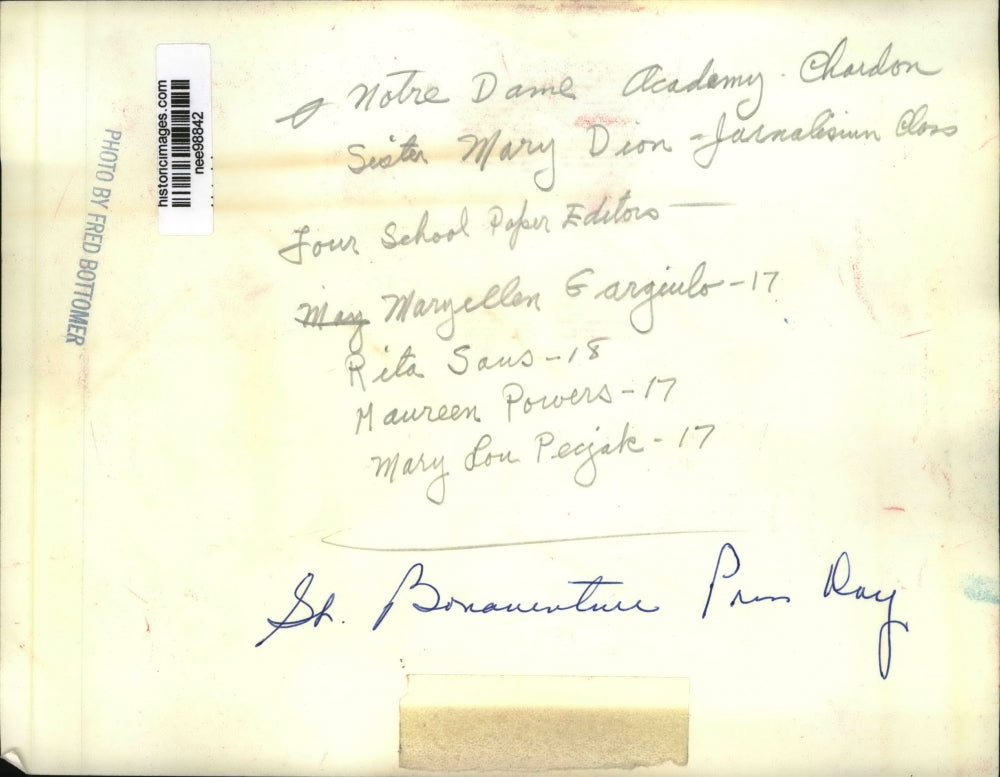 Notre Dame Academy - Chardon
Sister Mary Dion - Jurnalisium Class
Four School Paper Editors —
May Maryellen Gargiulo - 17
Rita Saus - 18
Maureen Powers - 17
Mary Lou Pecjak - 17
St. Bonaventure Press Day
PHOTO BY FRED BOTTOMER
historicimages.com
nee98842